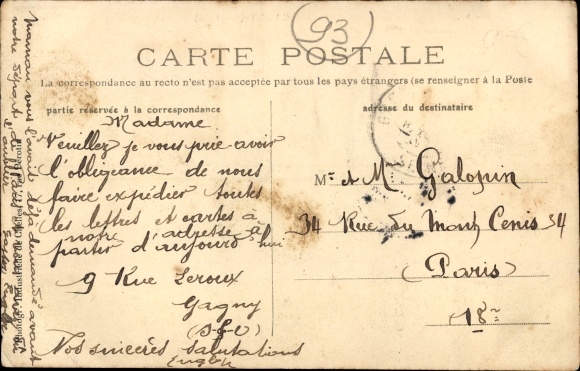 93
CARTE POSTALE
La correspondance au recto n'est pas acceptée par tous les pays étrangers (se renseigner à la Poste
partie réservée à la correspondance
adresse du destinataire
Madame
Veuillez je vous prie avoir
l'obligeance de nous
faire expédier toutes
les lettres et cartes à
notre adresse à
partir d'aujourd'hui
9 Rue Leroux
Gagny
(S-&-O)
Nos sincères salutations
Mr et Me Galopin
34 Rue du Mont Cenis 34
(Paris)
18e
maman vous l'avait déjà demandé avant
notre départ